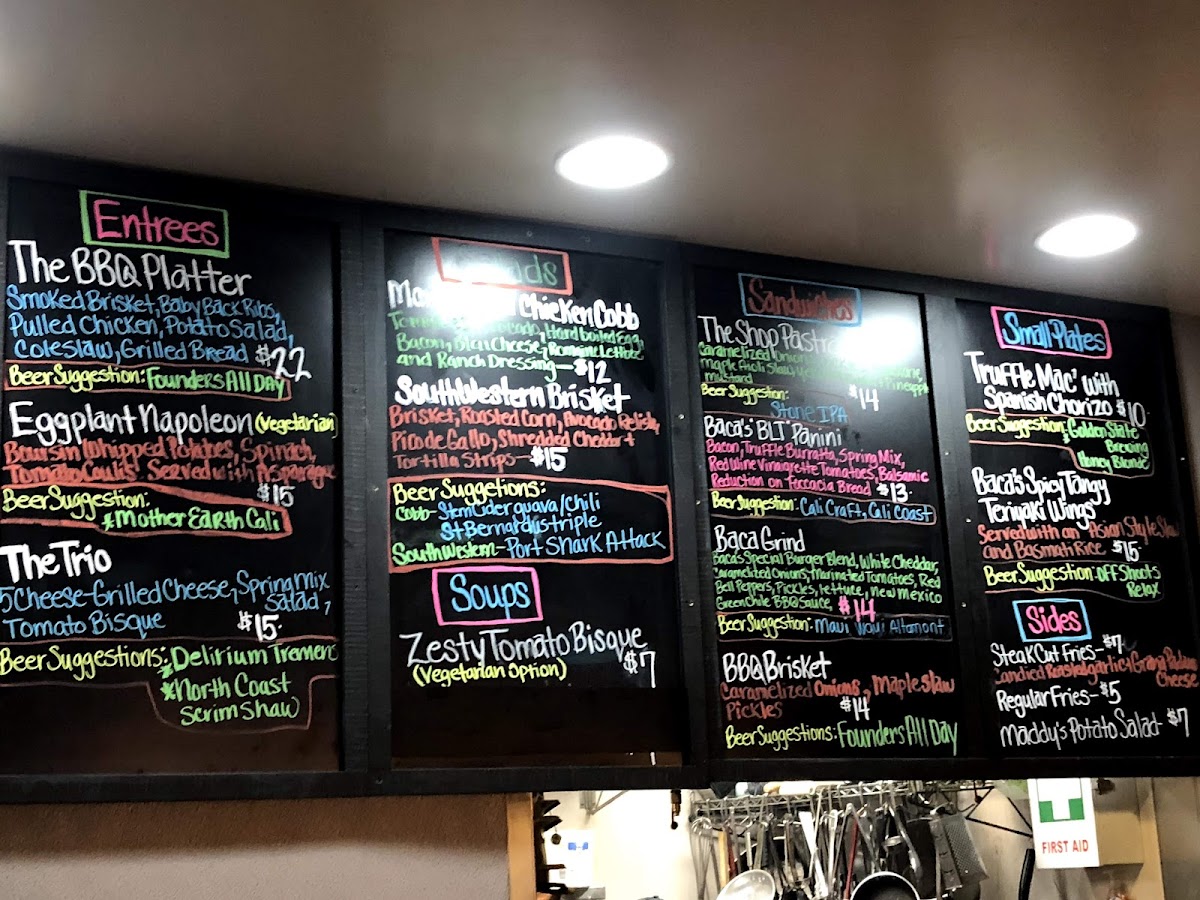 Entrees
The BBQ Platter
Smoked Brisket, Baby Back Ribs,
Pulled Chicken, Potato Salad,
Coleslaw, Grilled Bread $22
Beer Suggestion: Founders All Day
Eggplant Napoleon (Vegetarian)
Boursin Whipped Potatoes, Spinach,
Tomato Coulis' Served with Asparagus
$15
Beer Suggestion:
*Mother Earth Cali
The Trio
5 Cheese-Grilled Cheese, Spring Mix
Salad,
Tomato Bisque $15.
Beer Suggestions: *Delirium Tremens
*North Coast
Scrimshaw
Chicken Cobb
Hard boiled Egg,
Bacon, Bleu Cheese, Romaine Lettuce
and Ranch Dressing—$12
SouthWestern Brisket
Brisket, Roasted Corn, Avocado Relish,
Pico de Gallo, Shredded Cheddar +
Tortilla Strips—$15
Beer Suggetions:
Cobb- Stem Cider guava/Chili
St Bernardus triple
SouthWestern- Port Shark Attack
Soups
Zesty Tomato Bisque
(Vegetarian Option) $7
Sandwiches
The Shop
Caramelized
Maple Aioli Slaw,
mustard
$14
Beer Suggestion:
Stone IPA
Baca's BLT Panini
Bacon, Truffle Burratta, Spring Mix,
Red Wine Vinaigrette Tomatoes, Balsamic
Reduction on Foccacia Bread $13.
Beer Suggestion: Cali Craft, Cali Coast
Baca Grind
Baca's Special Burger Blend, White Cheddar,
Caramelized Onions, Marinated Tomatoes, Red
Bell Peppers, Pickles, lettuce, new mexico
Green Chile BBQ Sauce, $14
Beer Suggestion: Maui Altamont
BBQ Brisket
Caramelized Onions, Maple Slaw
Pickles $14
Beer Suggestions: Founders All Day
Small Plates
Truffle Mac' with
Spanish Chorizo $10.
Beer Suggestion: Golden State
Brewing
Honey Blonde
Baca's Spicy Tangy
Teriyaki Wings
Served with an Asian Style Slaw
and Basmati Rice $15.
Beer Suggestion: Off Shoots
Relax
Sides
Steak Cut Fries-$7
Candied Roasted garlic + Grana Padano
Cheese
Regular Fries-$5
Maddy's Potato Salad-$7
FIRST AID